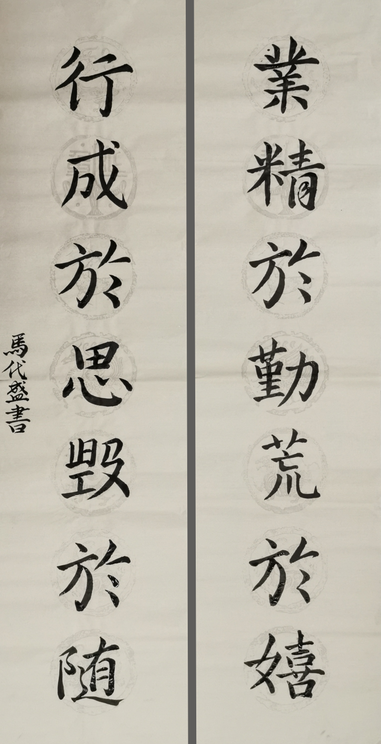 業精於勤荒於嬉
行成於思毀於随
馬代盛書